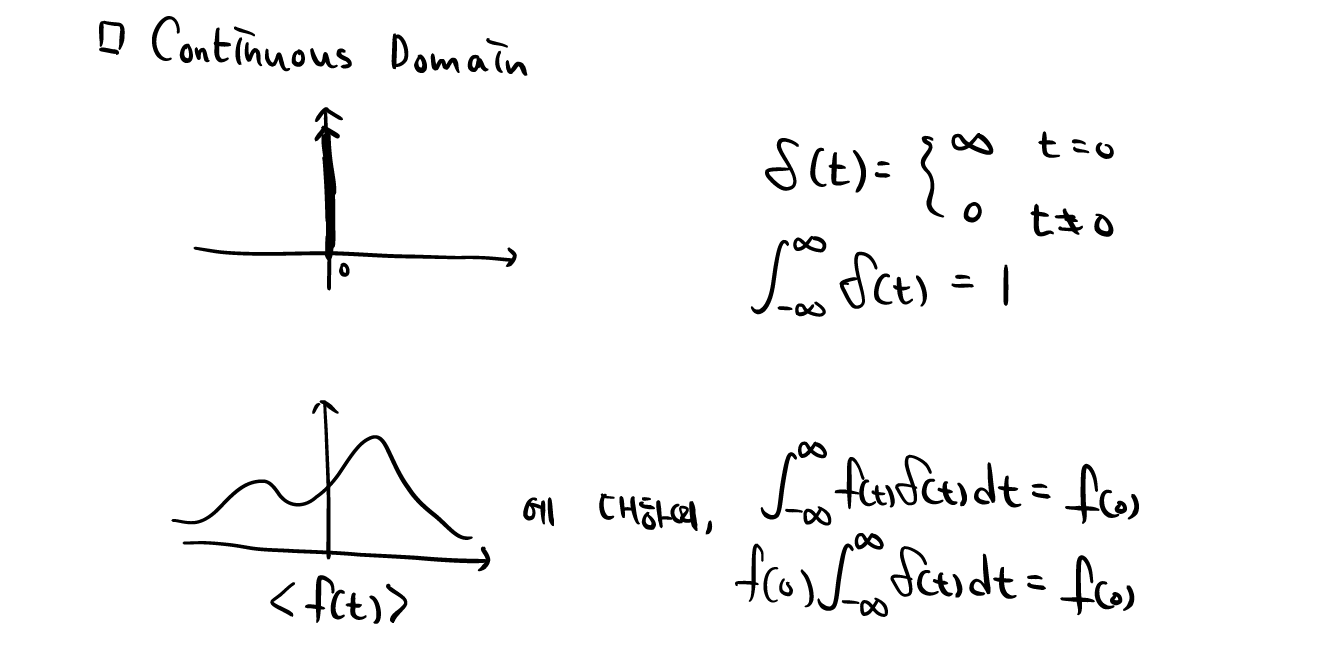 □ Continuous Domain
δ(t) = { ∞ t=0
0 t≠0
∫_{-∞}^{∞} δ(t) = 1
0
에 대하여, ∫_{-∞}^{∞} f(t)δ(t)dt = f(0)
f(0)∫_{-∞}^{∞} δ(t)dt = f(0)
<f(t)>